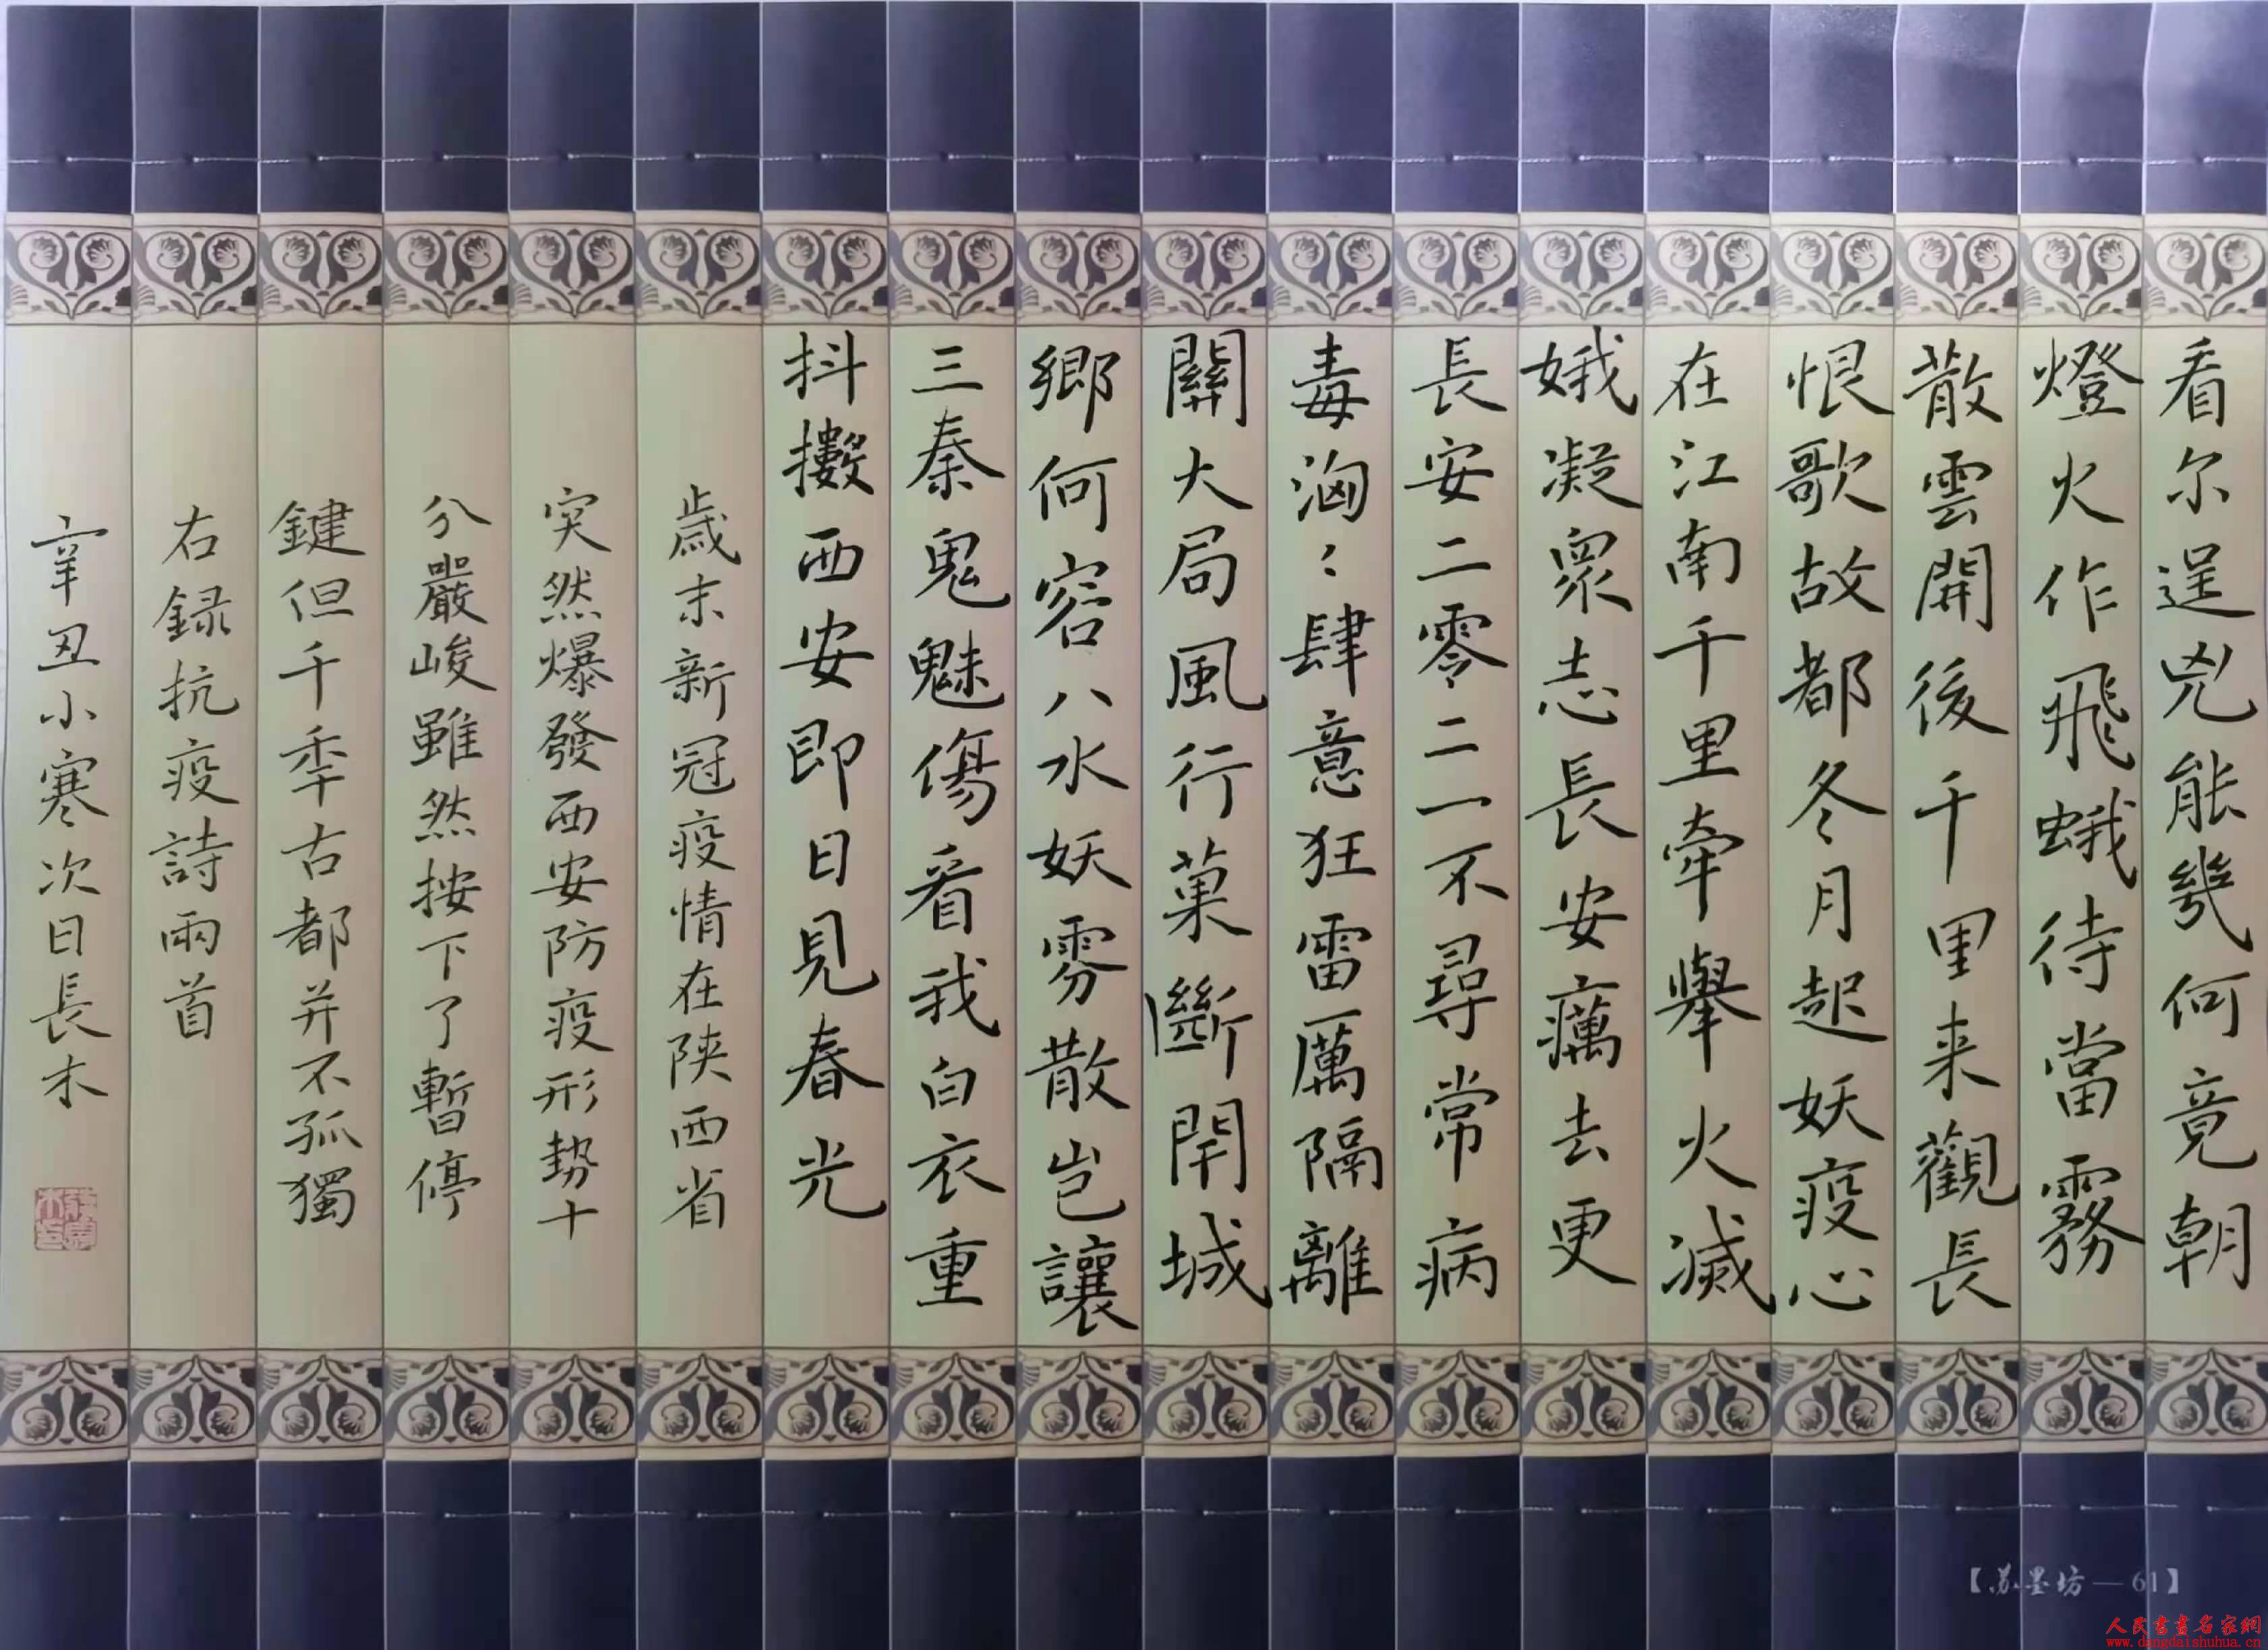 看尔逞兇能幾何竟朝
燈火作飛蛾待當霧
散雲開後千里来觀長
恨歌故都冬月起妖疫心
在江南千里牽舉火滅
娥凝衆志長安癘去更
長安二零二一不尋常病
毒洶〻肆意狂雷厲隔離
關大局風行菓斷閈城
鄉何容八水妖雰散豈讓
三秦鬼魅傷看我白衣重
抖擻西安即日見春光
歳末新冠疫情在陝西省
突然爆發西安防疫形勢十
分嚴峻雖然按下了暫停
鍵但千秊古都并不孤獨
右録抗疫詩兩首
辛丑小寒次日長木
【苏墨坊—61】
人民書畫名家網
www.dangdaishuhua.cn